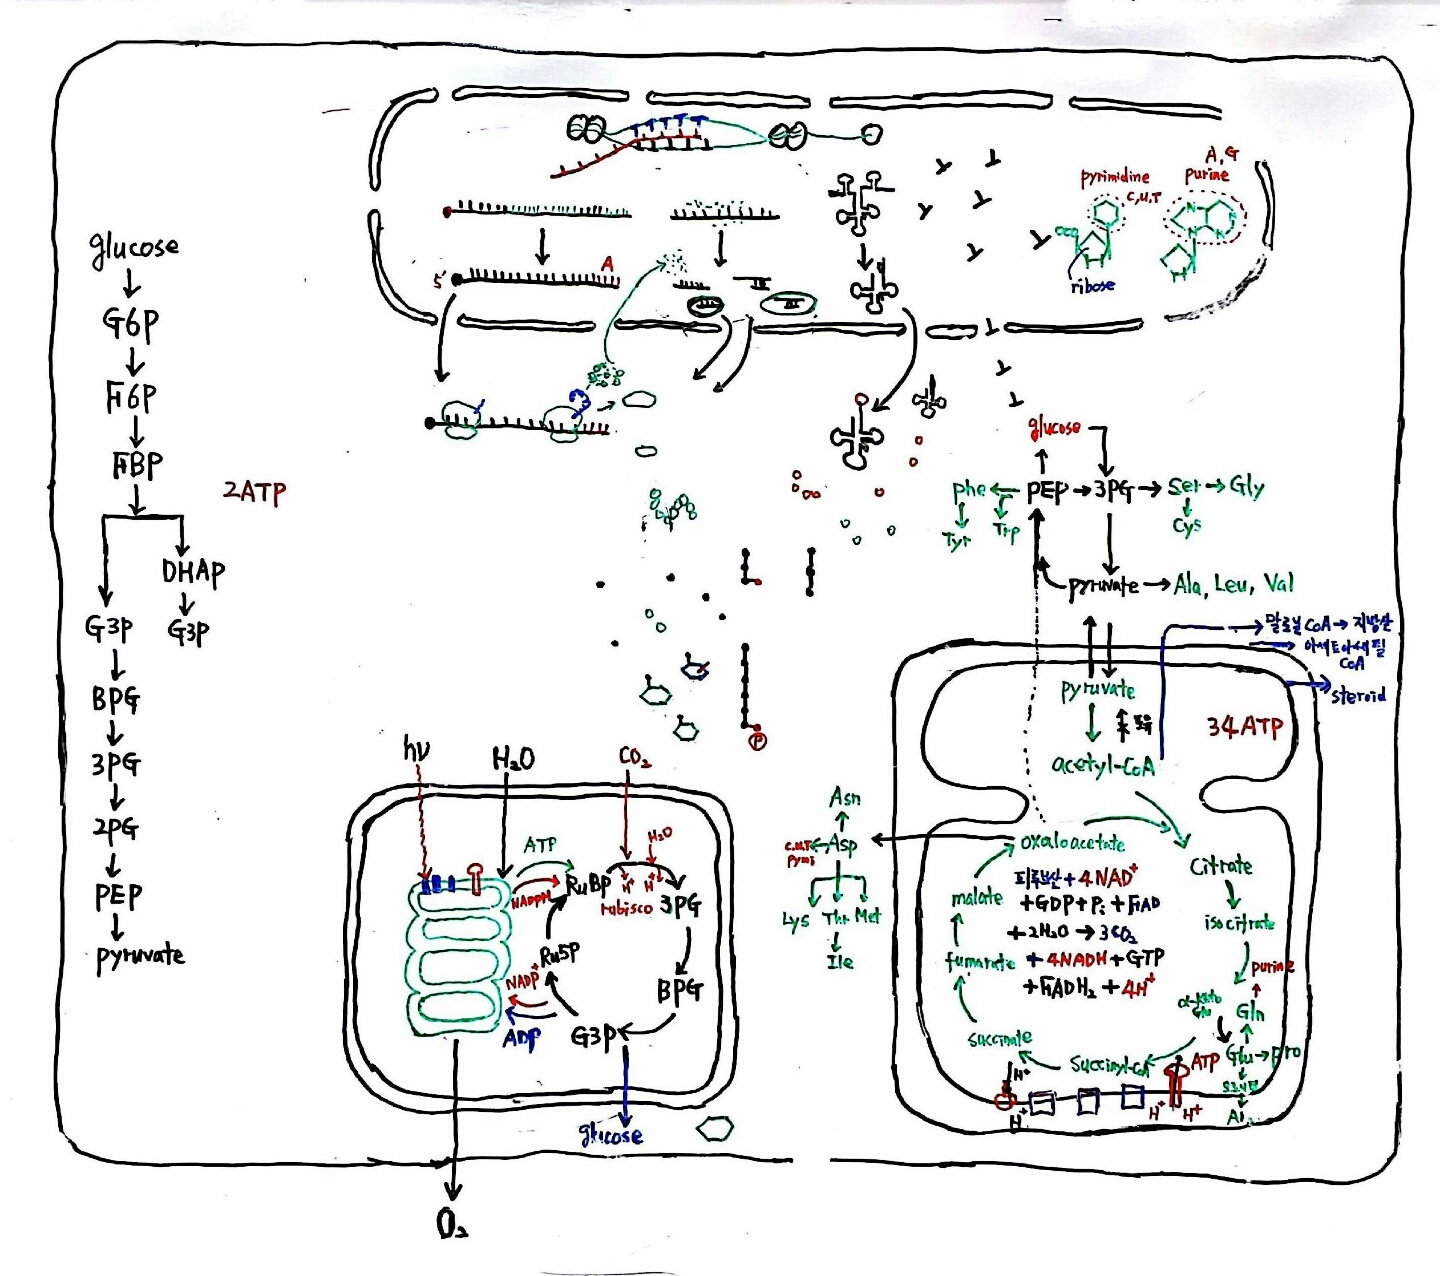 A, G
pyrimidine
purine
C, U, T
A
5'
ribose
glucose
G6P
F6P
FBP
2ATP
DHAP
G3P
G3P
BPG
3PG
2PG
PEP
pyruvate
glucose
phe
PEP
3PG
Ser
Gly
Tyr
Trp
Cys
pyruvate
Ala, Leu, Val
말로닐 CoA → 지방산
아세토아세틸
CoA
steroid
pyruvate
34ATP
acetyl-CoA
P
hν
H₂O
CO₂
ATP
H₂O
NADPH
RuBP
H⁺
H⁺
rubisco
3PG
Ru5P
NADP⁺
BPG
ADP
G3P
glucose
O₂
Asn
C.U.T
Pymi
Asp
Lys
Thr
Met
Ile
oxaloacetate
Citrate
malate
피루브산 + 4NAD⁺
+GDP+Pᵢ+FAD
+2H₂O → 3CO₂
+4NADH+GTP
+FADH₂+4H⁺
isocitrate
fumarate
purine
α-keto
Gln
succinate
Succinyl-CoA
ATP
Glu
pro
H⁺
H⁺
H⁺
H⁺